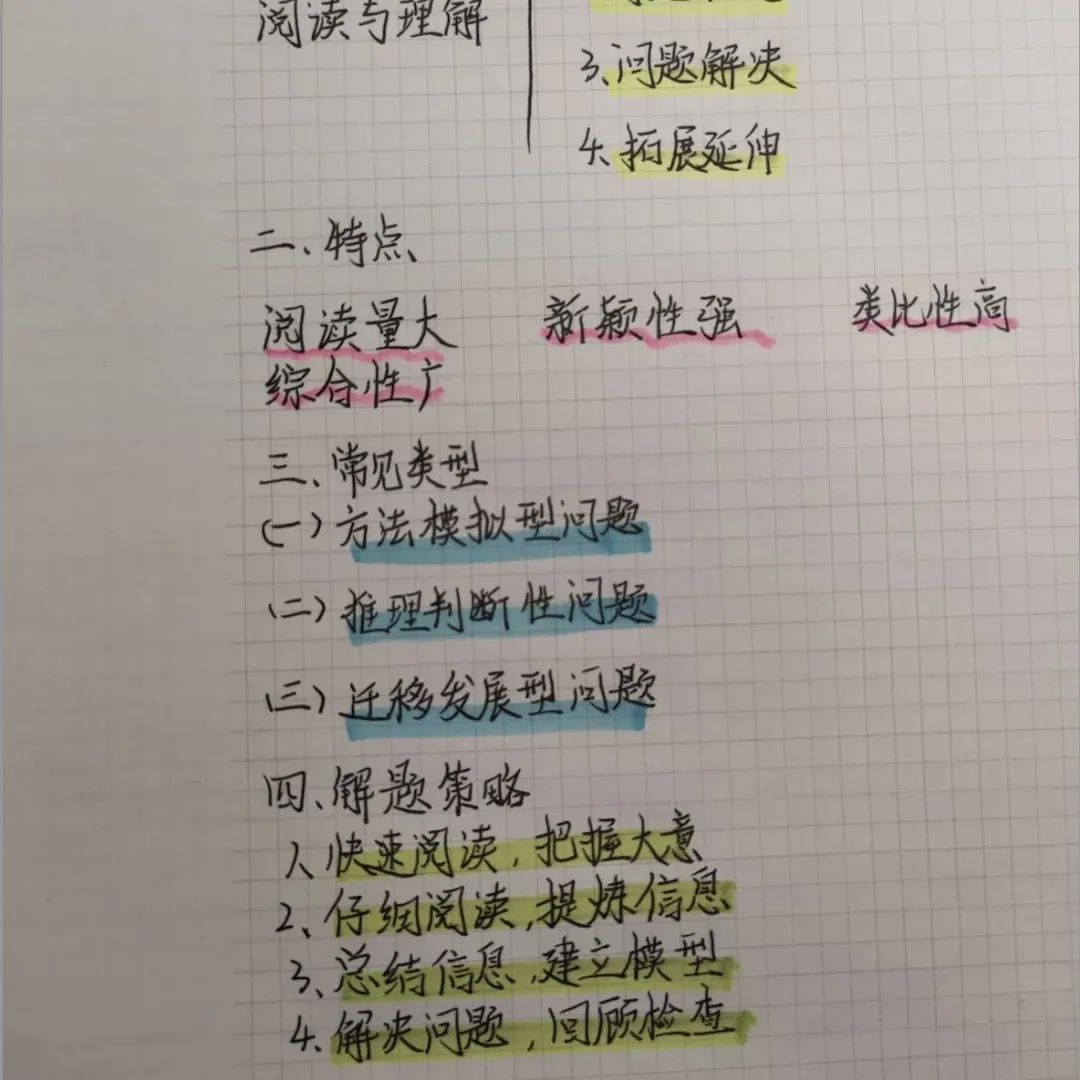 阅读与理解
3、问题解决
4、拓展延伸
二、特点
阅读量大 新颖性强 类比性高
综合性广
三、常见类型
(一)方法模拟型问题
(二)推理判断性问题
(三)迁移发展型问题
四、解题策略
1、快速阅读，把握大意
2、仔细阅读，提炼信息
3、总结信息，建立模型
4、解决问题，回顾检查